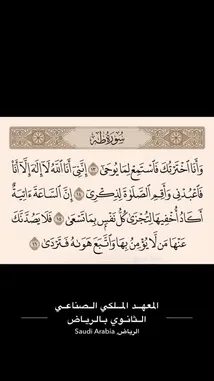 سُورَةُ طه
وَأَنَا ٱخۡتَرۡتُكَ فَٱسۡتَمِعۡ لِمَا يُوحَىٰٓ ١٣ إِنَّنِيٓ أَنَا ٱللَّهُ لَآ إِلَٰهَ إِلَّآ أَنَا۠
فَٱعۡبُدۡنِي وَأَقِمِ ٱلصَّلَوٰةَ لِذِكۡرِيٓ ١٤ إِنَّ ٱلسَّاعَةَ ءَاتِيَةٌ
أَكَادُ أُخۡفِيهَا لِتُجۡزَىٰ كُلُّ نَفۡسِۭ بِمَا تَسۡعَىٰ ١٥ فَلَا يَصُدَّنَّكَ
عَنۡهَا مَن لَّا يُؤۡمِنُ بِهَا وَٱتَّبَعَ هَوَىٰهُ فَتَرۡدَىٰ ١٦
المعهد الملكي الصناعي
الثانوي بالرياض
الرياض, Saudi Arabia